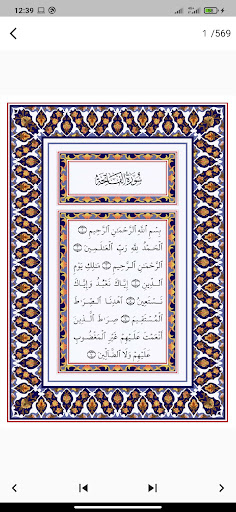 12:39
1 /569
سورة الفاتحة
بِسْمِ ٱللَّهِ ٱلرَّحْمَٰنِ ٱلرَّحِيمِ ١
ٱلْحَمْدُ لِلَّهِ رَبِّ ٱلْعَٰلَمِينَ ٢
ٱلرَّحْمَٰنِ ٱلرَّحِيمِ ٣ مَٰلِكِ يَوْمِ
ٱلدِّينِ ٤ إِيَّاكَ نَعْبُدُ وَإِيَّاكَ
نَسْتَعِينُ ٥ ٱهْدِنَا ٱلصِّرَٰطَ
ٱلْمُسْتَقِيمَ ٦ صِرَٰطَ ٱلَّذِينَ
أَنْعَمْتَ عَلَيْهِمْ غَيْرِ ٱلْمَغْضُوبِ
عَلَيْهِمْ وَلَا ٱلضَّآلِّينَ ٧